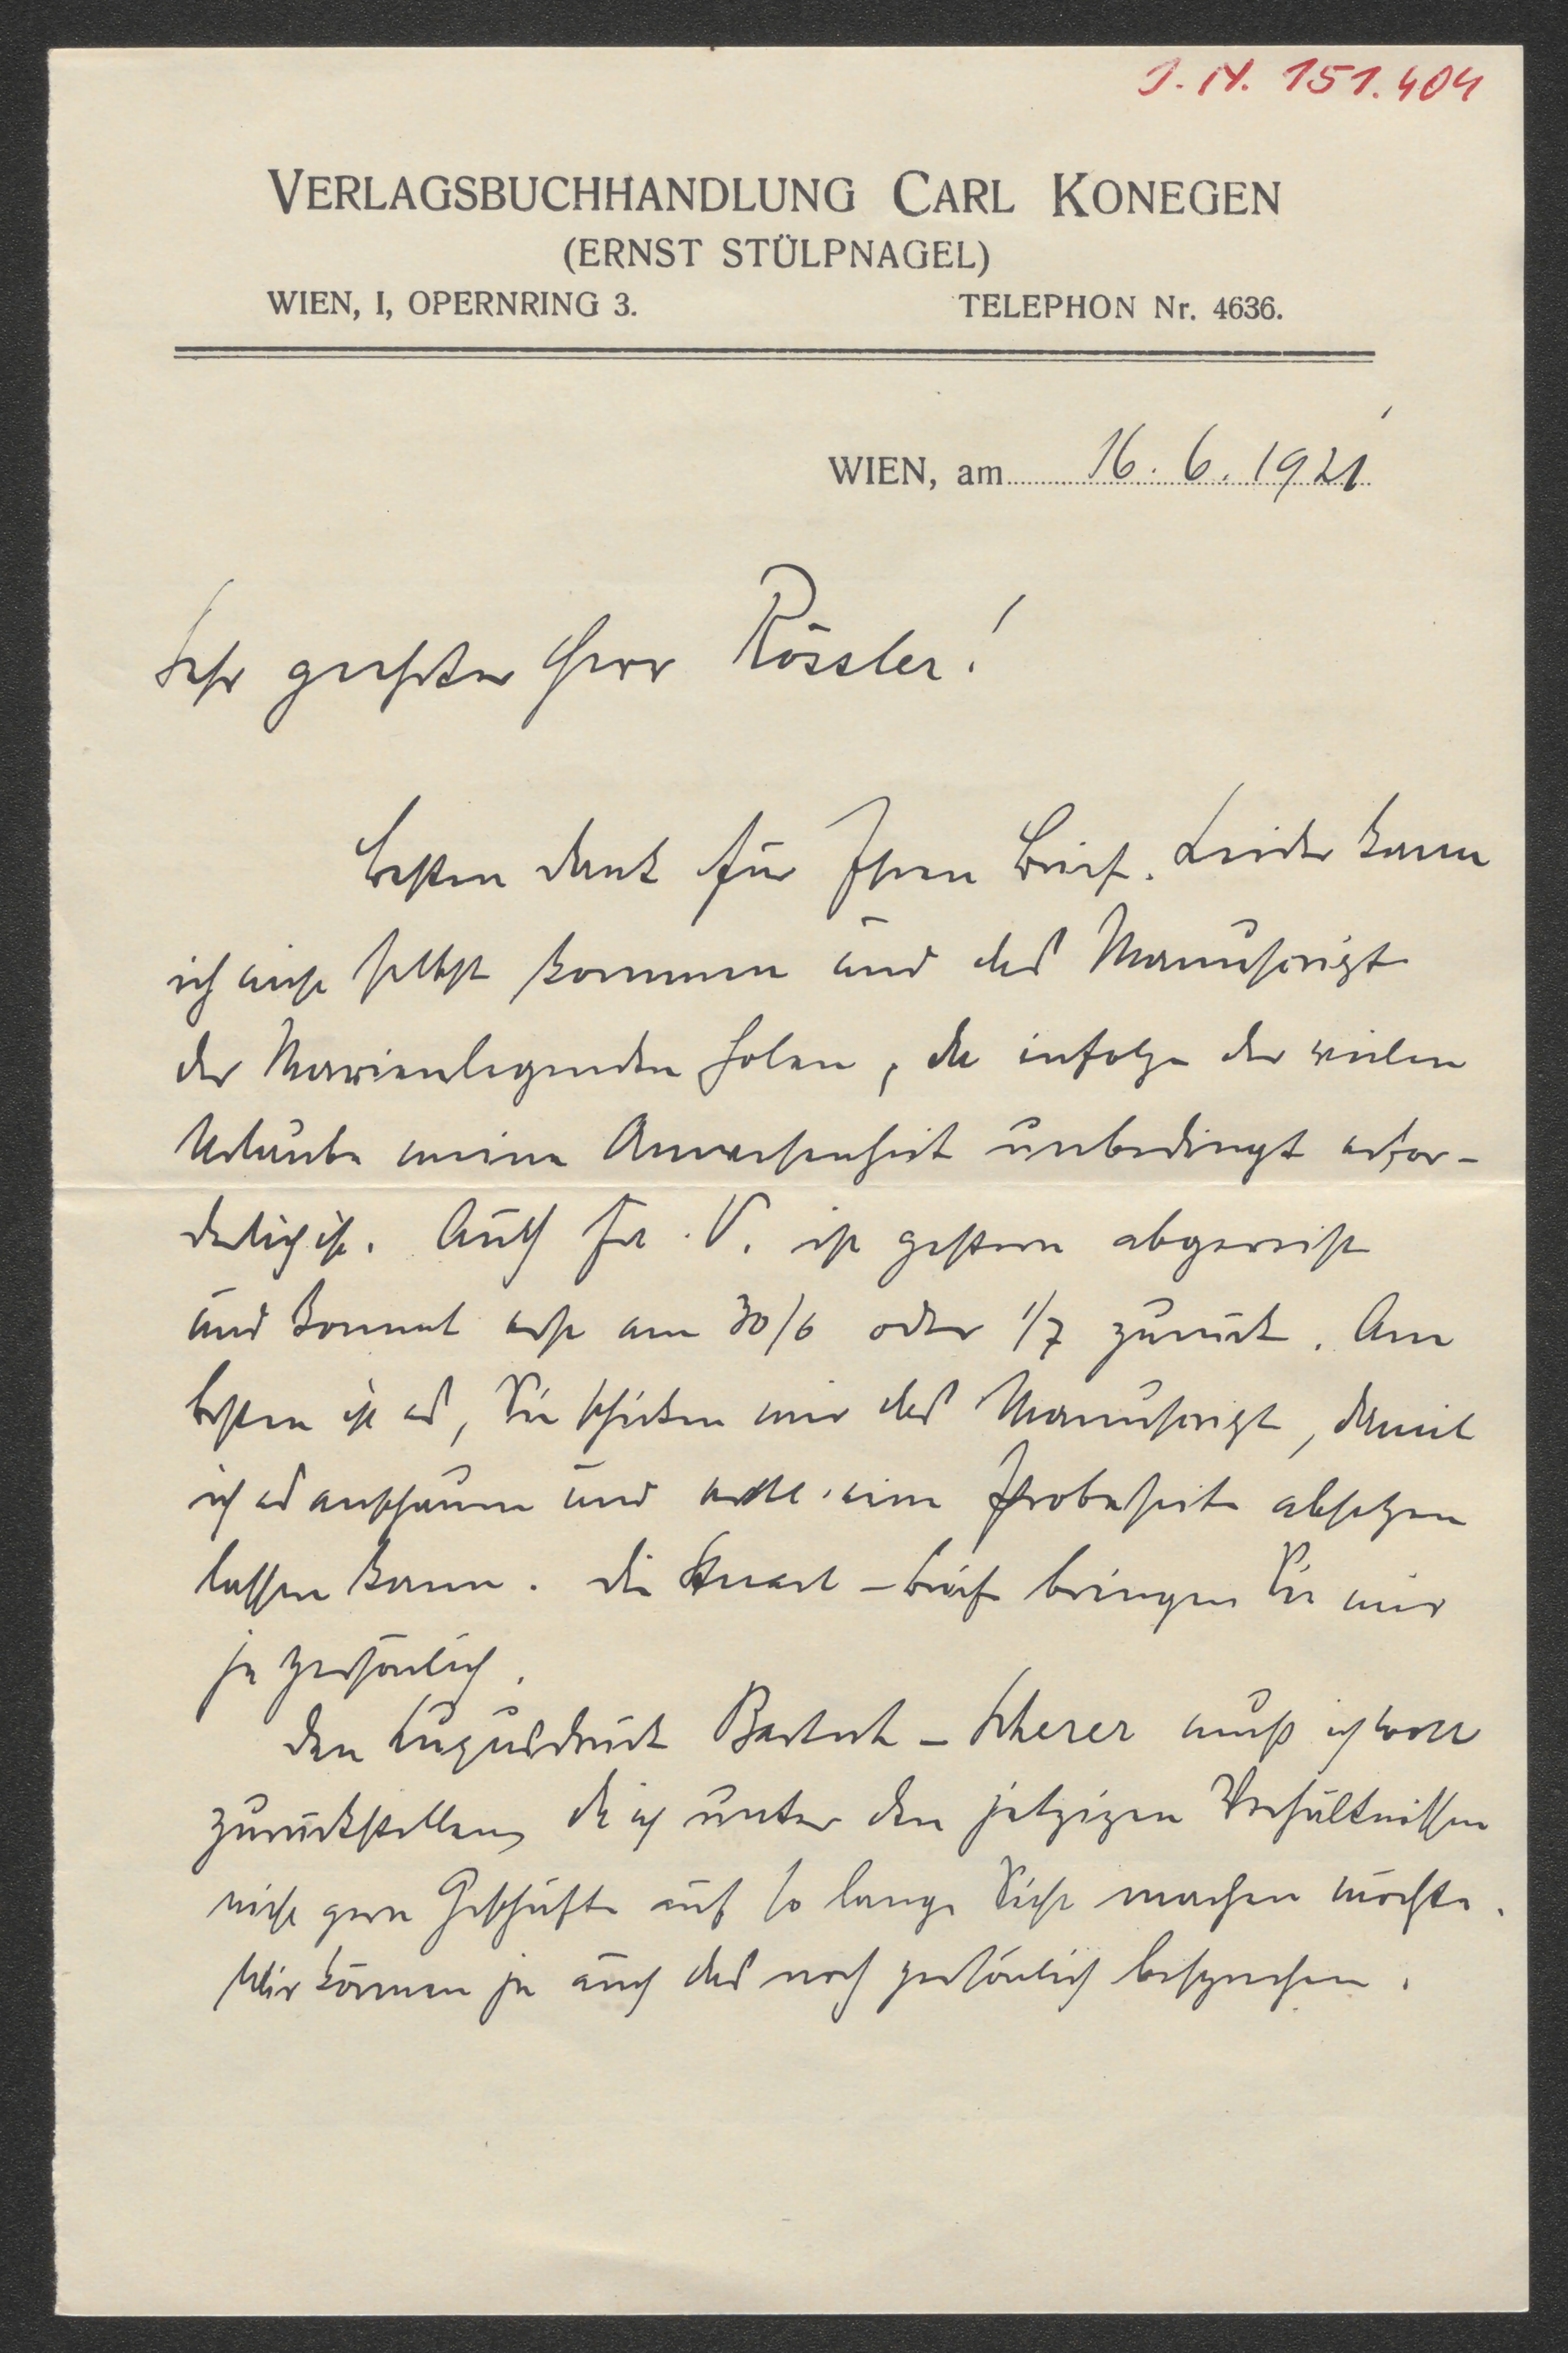 J. N. 151.404
VERLAGSBUCHHANDLUNG CARL KONEGEN
(ERNST STÜLPNAGEL)
WIEN, I, OPERNRING 3. TELEPHON Nr. 4636.
WIEN, am 16. 6. 1921
Sehr geehrter Herr Rössler!
besten Dank für Ihren Brief. Leider kann
ich nicht selbst kommen und das Manuskript
der Marienlegenden holen, da infolge der vielen
Urlaube meine Anwesenheit unbedingt erfor-
derlich ist. Auch Frl. V. ist gestern abgereist
und kommt erst am 30/6 oder 1/7 zurück. Am
besten ist es, Sie schicken mir das Manuskript, damit
ich es anschauen und evtl. eine Probeseite absetzen
lassen kann. Die -Briefe bringen Sie mir
ja persönlich.
Den Luxusdruck Bartsch - Scherer muß ich wohl
zurückstellen, da ich unter den jetzigen Verhältnissen
nicht gern Geschäfte auf so lange Sicht machen möchte.
Wir können ja auch das noch persönlich besprechen.